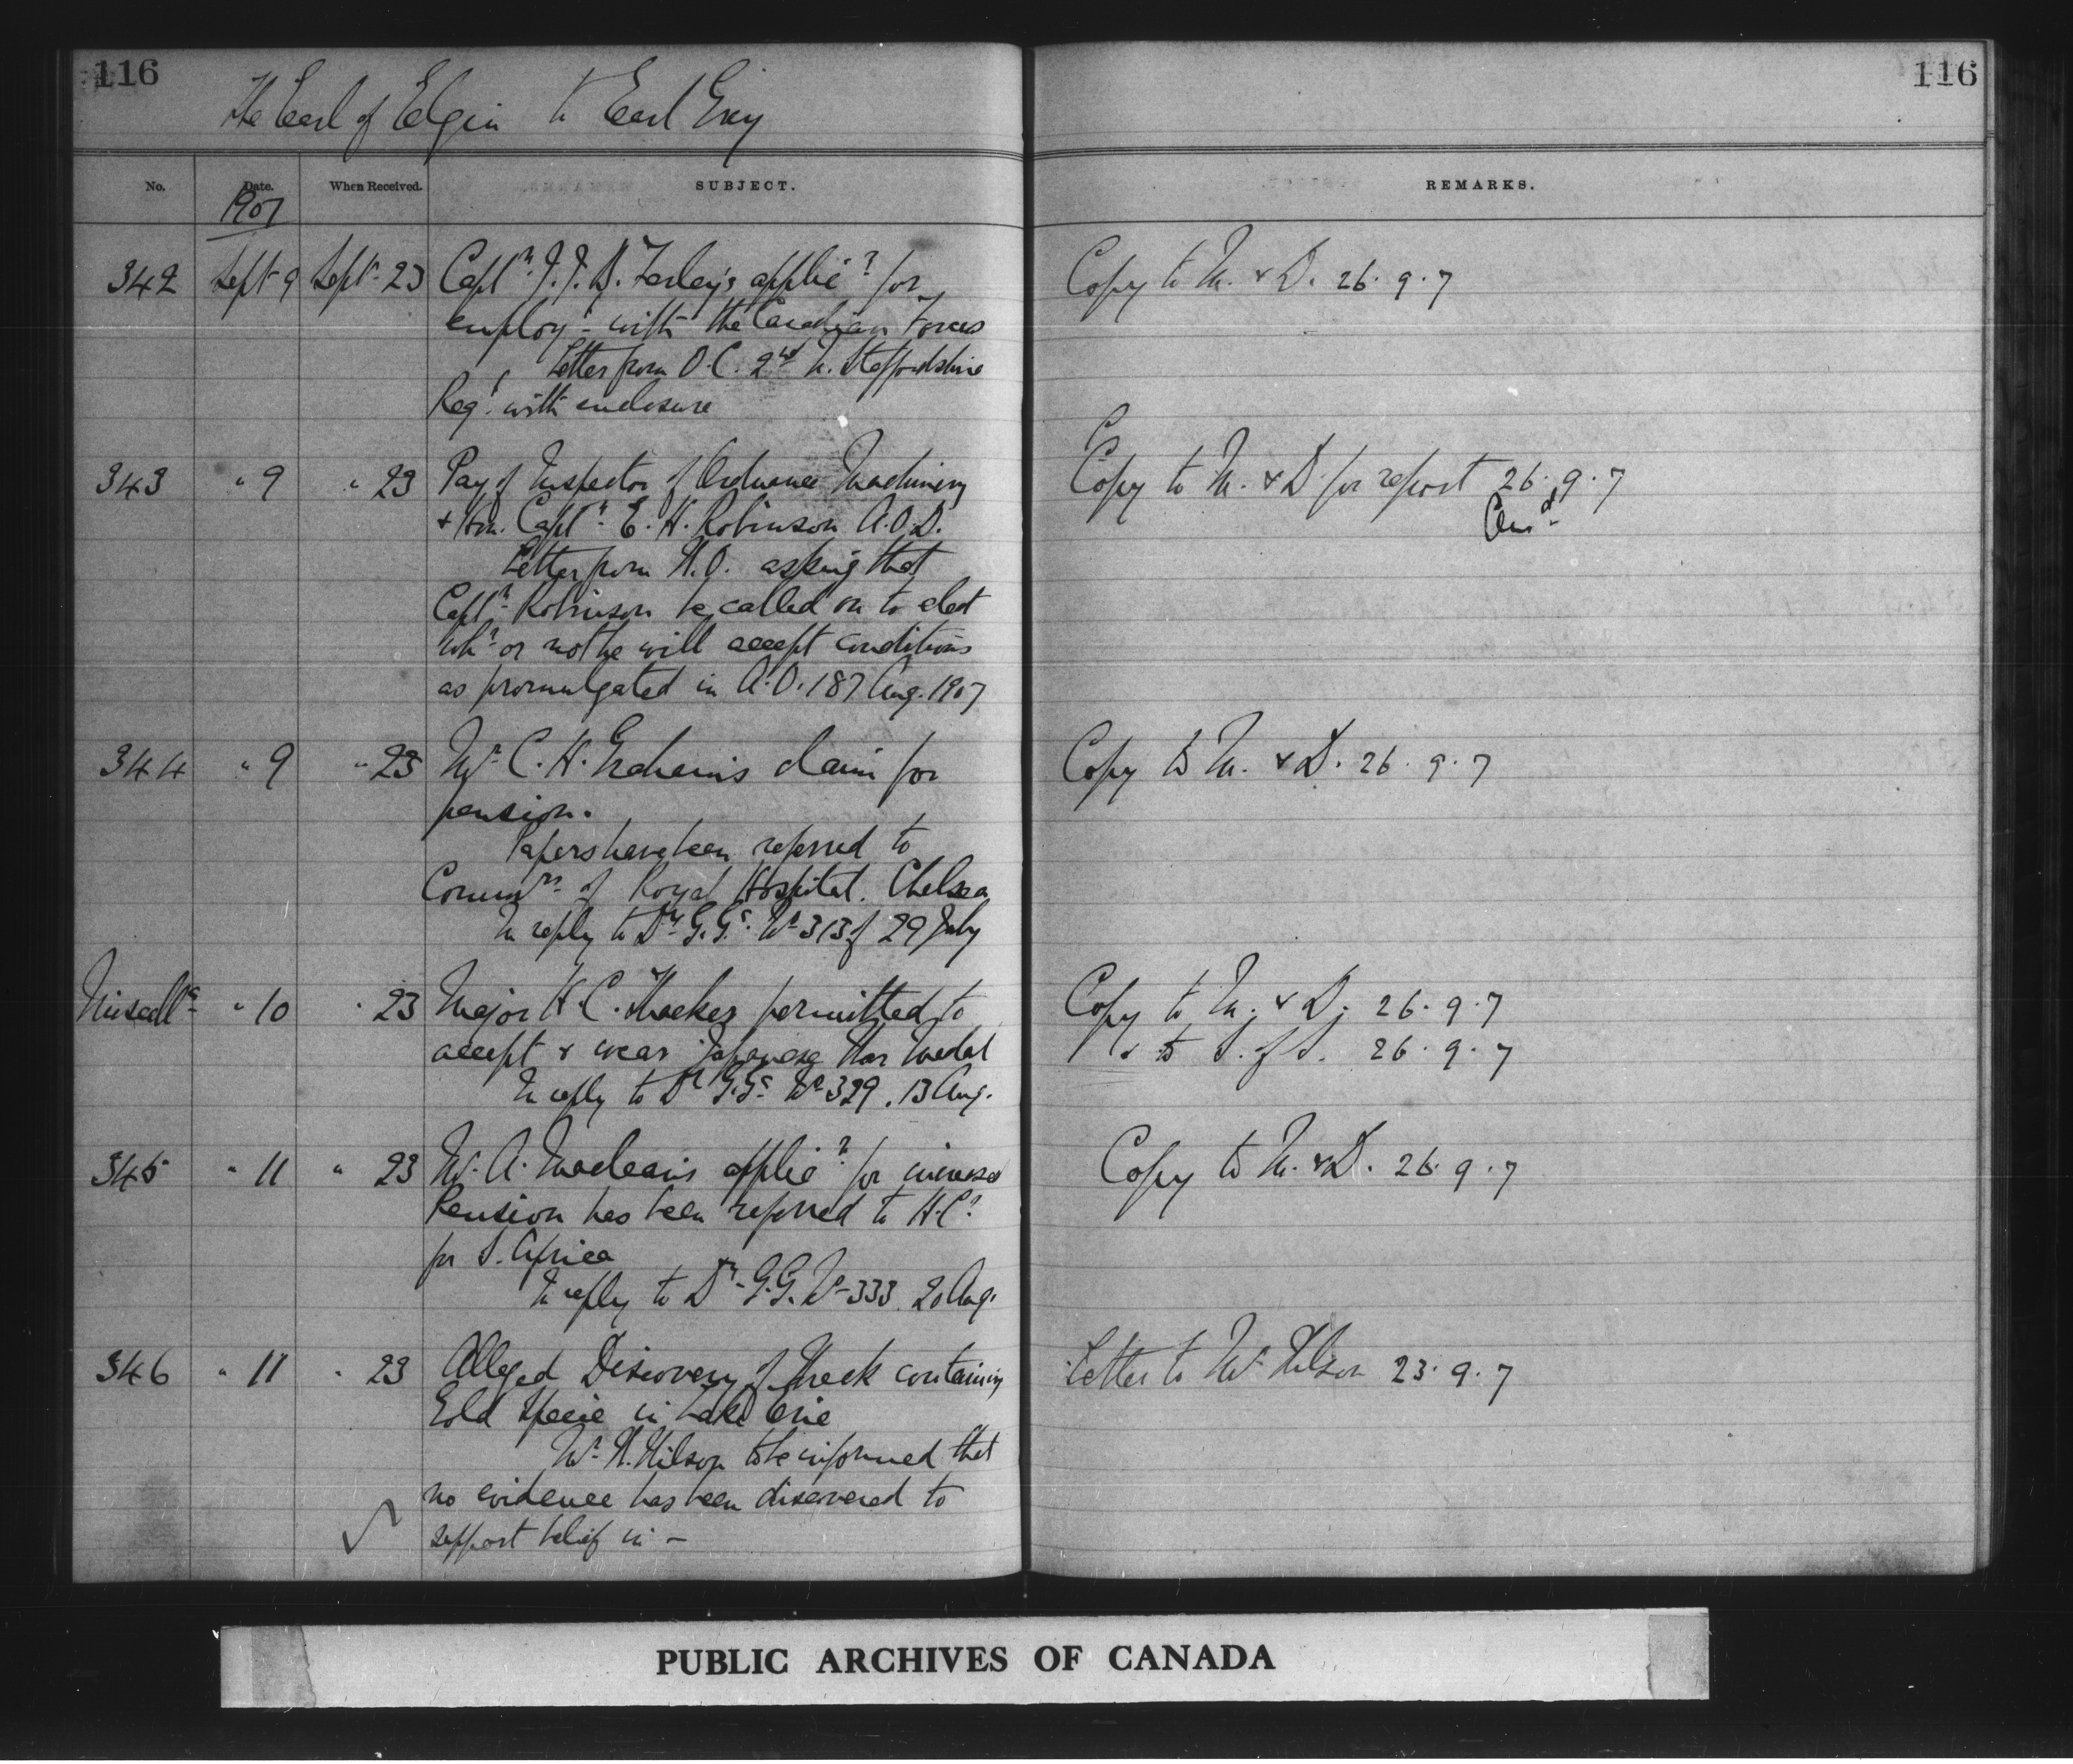 116
116
The Earl of Elgin to Earl Grey
No.
Date.
When Received.
SUBJECT.
REMARKS.
1907
342 Sept 9 Sept. 23 Captn. J. J. B. Farley's applicn for
employt. with the Canadian Forces
Letter from O.C. 2nd N. Staffordshire
Regt. with enclosure
Copy to M. & D. 26.9.7
343 " 9 " 23 Pay of Inspector of Ordnance Machinery
& Hon. Captn. E. H. Robinson A.O.D.
Letter from W.O. asking that
Captn. Robinson be called on to elect
whr. or not he will accept conditions
as promulgated in A.O. 187 Aug. 1907
Copy to M. & D. for report 26.9.7
Ansd.
344 " 9 " 23 Mr. C. H. Graham's claim for
pension.
Papers have been referred to
Commrs. of Royal Hospital. Chelsea
In reply to Dy. G.G's. No 313 of 29 July
Copy to M. & D. 26.9.7
Miscells. " 10 " 23 Major H. C. Thacker permitted to
accept & wear Japanese War Medal
In reply to Dy G.G's. No. 329. 13 Aug.
Copy to M. & D. 26.9.7
& to S. of S. 26.9.7
345 " 11 " 23 Mr. A. Maclean's applicn. for increased
Pension has been referred to H.Cr.
for S. Africa
In reply to Dy. G.G. No 333. 20 Aug.
Copy to M. & D. 26.9.7
346 " 11 " 23 Alleged Discovery of Wreck containing
Gold Specie in Lake Erie
Mr. W. Wilson to be informed that
no evidence has been discovered to
support belief in –
Letter to Mr. Wilson 23.9.7
PUBLIC ARCHIVES OF CANADA